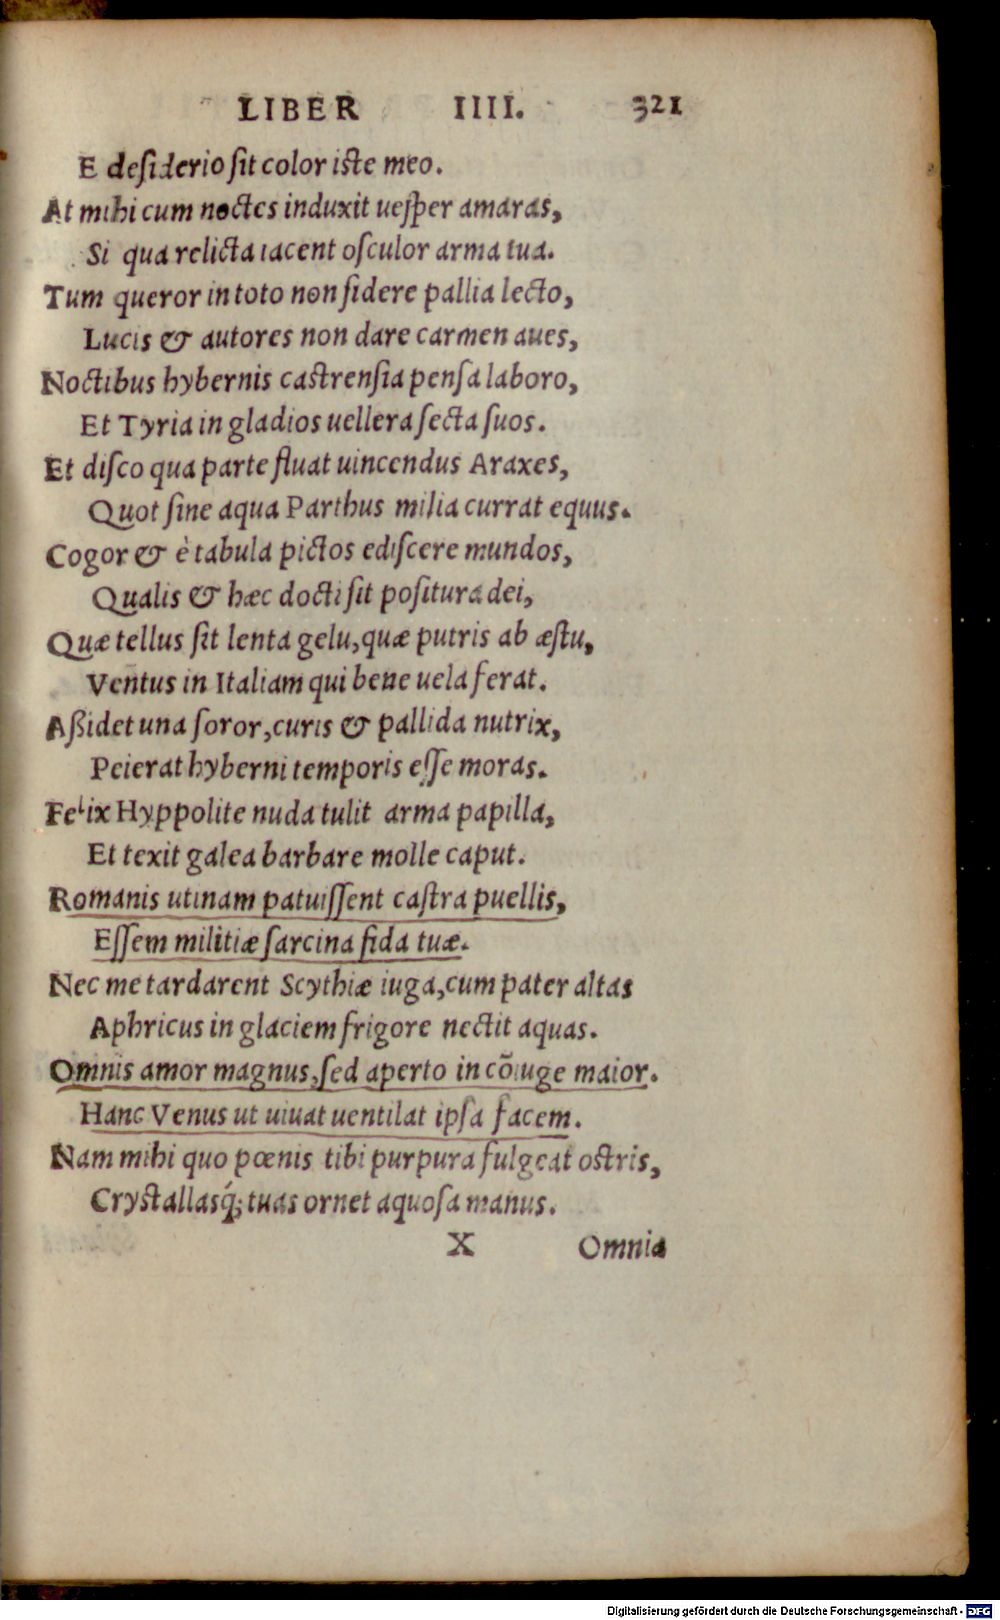 LIBER IIII. 321
E desiderio sit color iste meo.
At mihi cum noctes induxit uesper amaras,
Si qua relicta iacent osculor arma tua.
Tum queror in toto non sidere pallia lecto,
Lucis & autores non dare carmen aues,
Noctibus hybernis castrensia pensa laboro,
Et Tyria in gladios uellera secta suos.
Et disco qua parte fluat uincendus Araxes,
Quot sine aqua Parthus milia currat equus.
Cogor & è tabula pictos ediscere mundos,
Qualis & hæc docti sit positura dei,
Quæ tellus sit lenta gelu, quæ putris ab æstu,
Ventus in Italiam qui bene uela ferat.
Aßidet una soror, curis & pallida nutrix,
Peierat hyberni temporis esse moras.
Felix Hyppolite nuda tulit arma papilla,
Et texit galea barbare molle caput.
Romanis utinam patuissent castra puellis,
Essem militiæ sarcina fida tuæ.
Nec me tardarent Scythiæ iuga, cum pater altas
Aphricus in glaciem frigore nectit aquas.
Omnis amor magnus, sed aperto in cõiuge maior.
Hanc Venus ut uiuat uentilat ipsa facem.
Nam mihi quo pœnis tibi purpura fulgeat ostris,
Crystallasq́; tuas ornet aquosa manus.
X Omnia
Digitalisierung gefördert durch die Deutsche Forschungsgemeinschaft - DFG